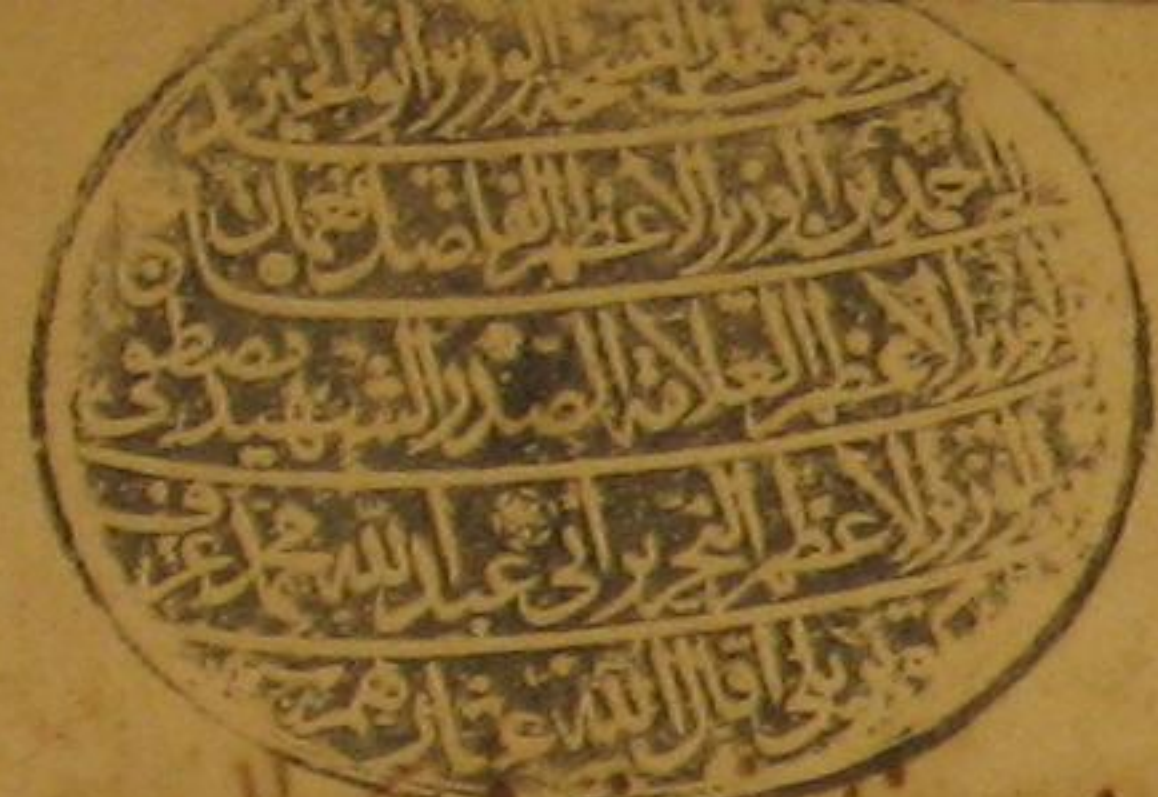 وقف هذا النسخة الوزير ابو الخير
احمد بن الوزير الاعظم الفاضل نعمان بن
الوزير الاعظم العلامة الصدر الشهيد مصطفى بن
الوزير الاعظم النحرير ابي عبد الله محمد عرف
كوبريلي اقال الله عثارهم